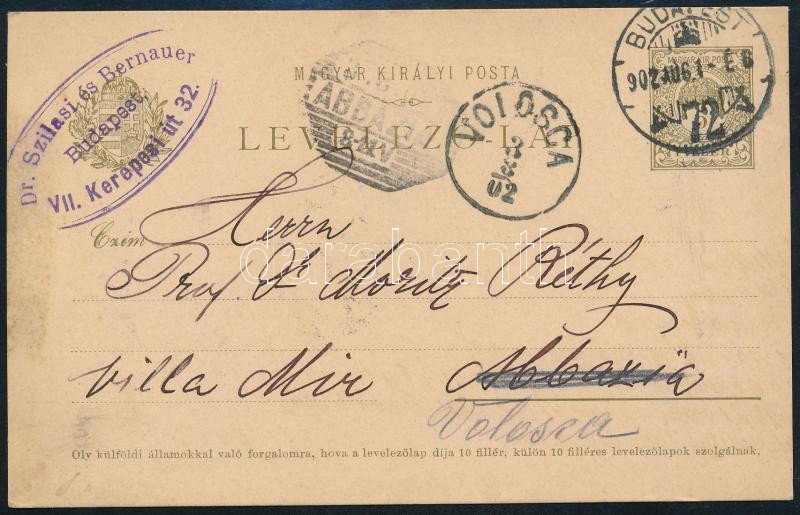 Dr. Szilasi és Bernauer
Budapest,
VII. Kerepesi út 32.
MAGYAR KIRÁLYI POSTA
LEVELEZŐ-LAP
ABBAZIA
VOLOSCA
3
02
BUDAPEST
72
MAGYAR KIR. POSTA
Czim
Herrn
Prof. Dr Moritz Réthy
Villa Mir Abbazia
Volosca
Oly külföldi államokkal való forgalomra, hova a levelezőlap díja 10 fillér, külön 10 filléres levelezőlapok szolgálnak.
darabanth.com